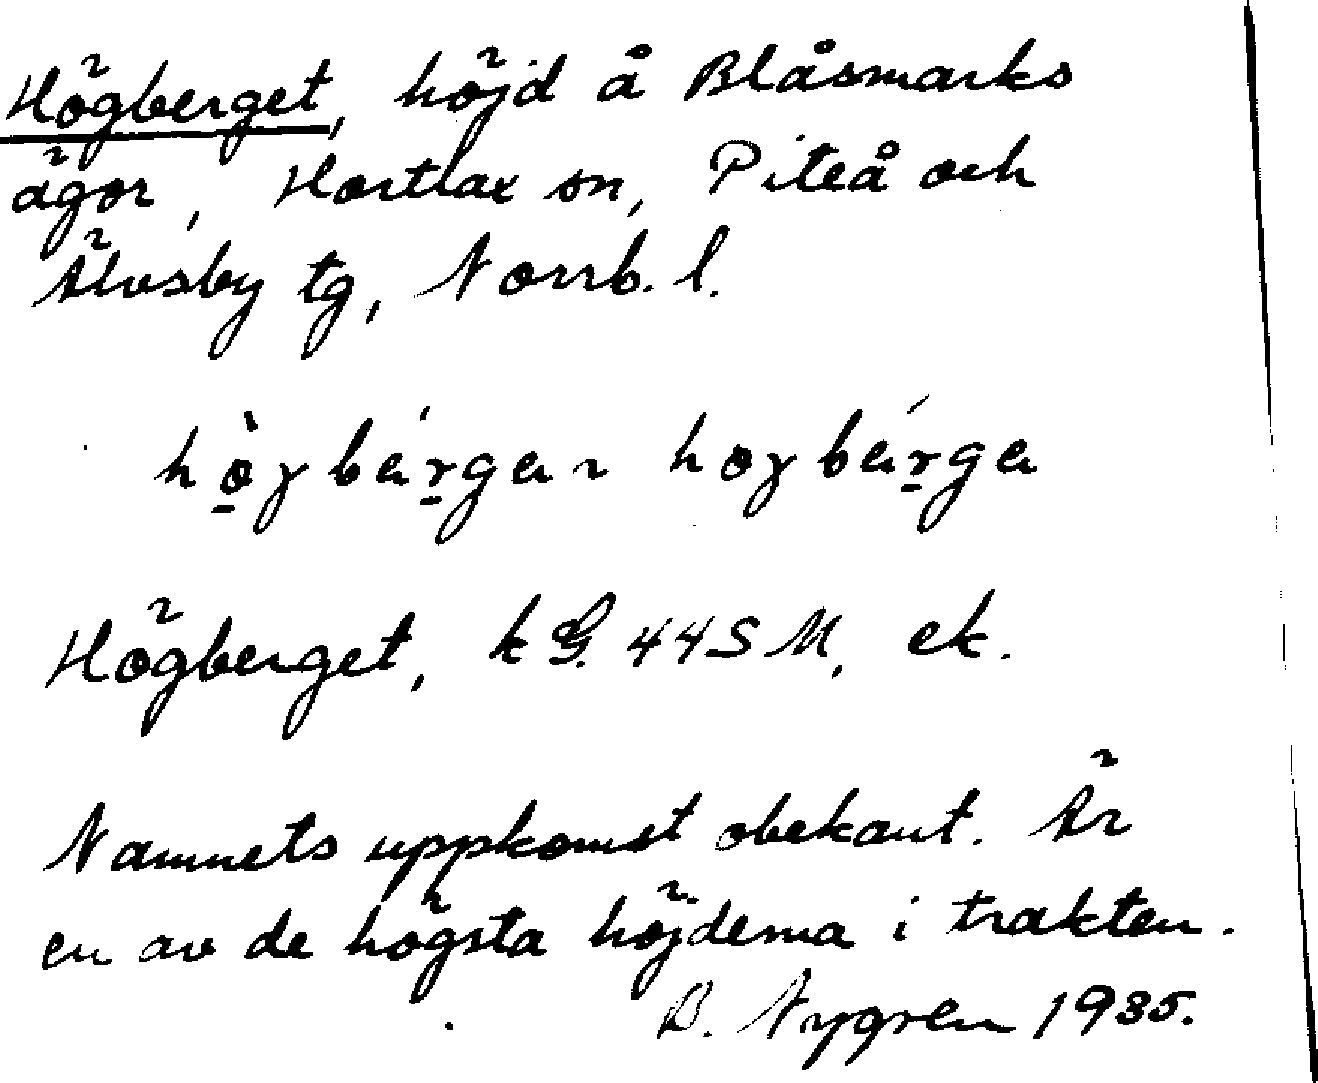 Högberget, höjd å Blåsmarks
ägor, Hortlax sn, Piteå och
Älvsby tg, Norrb. l.
Högberget, k G. 44 S M, ek.
Namnets uppkomst obekant. Är
en av de högsta höjderna i trakten.
B. Nygren 1935.